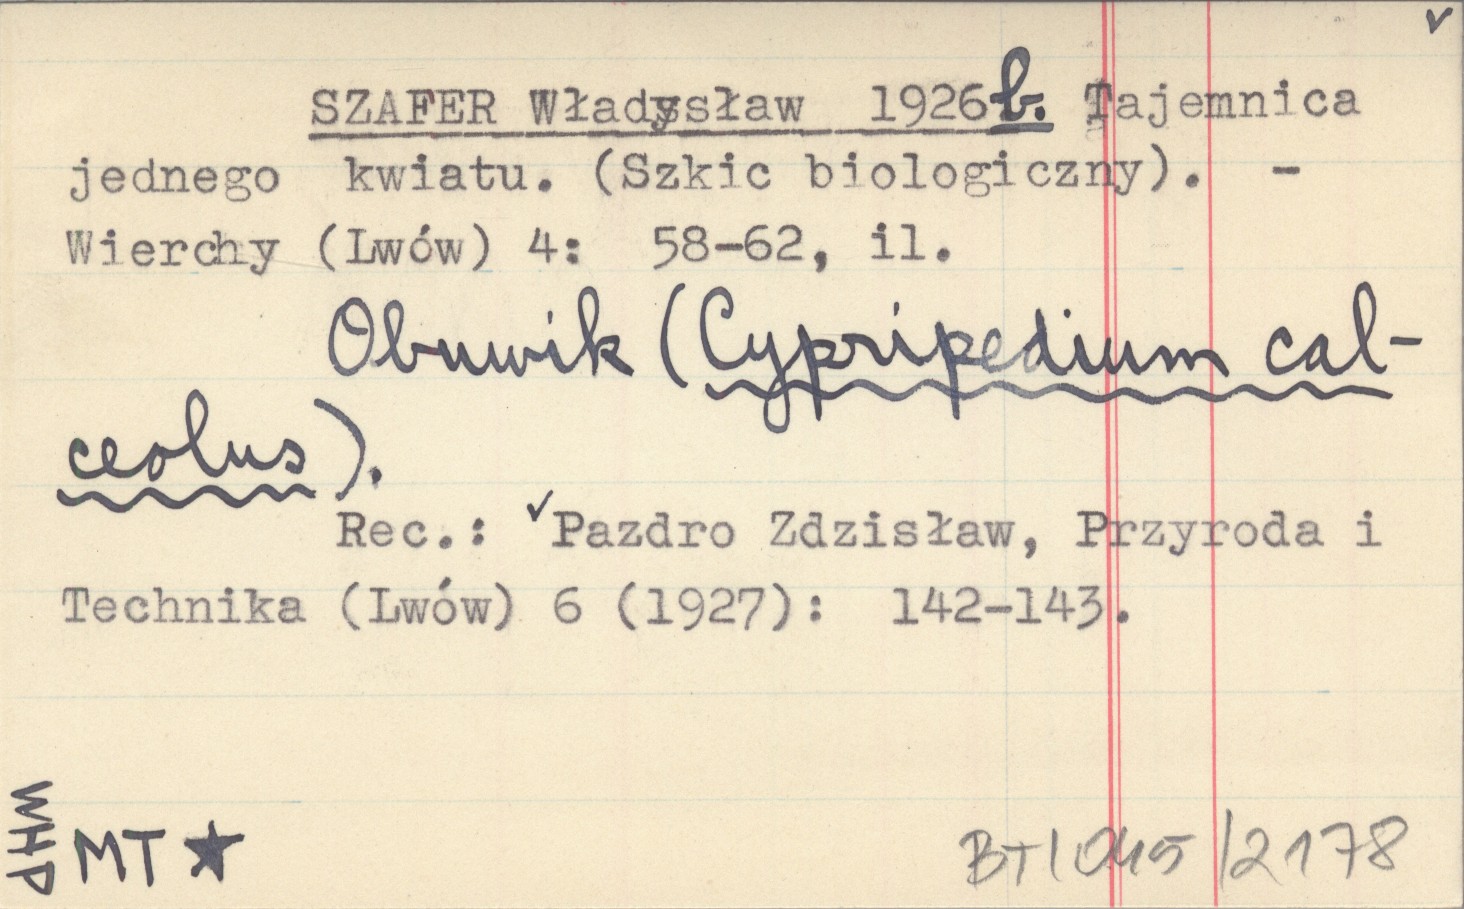 SZAFER Władysław 1926b. Tajemnica
jednego kwiatu. (Szkic biologiczny). -
Wierchy (Lwów) 4: 58-62, il.
Obuwik (Cypripedium cal-
ceolus).
Rec.: ✓Pazdro Zdzisław, Przyroda i
Technika (Lwów) 6 (1927): 142-143.
WHP
MT ★
BT/045/2178